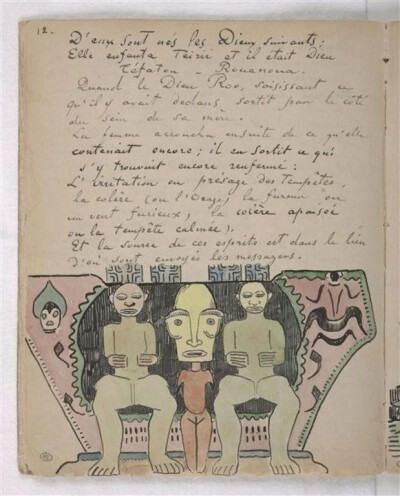 12.
D'eux sont nés les Dieux suivants:
Elle enfanta Téirii et il était Dieu
Téfatou - Rouanoua.
Quand le Dieu Roo, saisissant ce
qu'il y avait dedans, sortit par le côté
du sein de sa mère.
La femme accoucha ensuite de ce qu'elle
contenait encore; il en sortit ce qui
s'y trouvait encore renfermé:
L'irritation ou présage des tempêtes,
la colère (ou l'Orage) la fureur ou
un vent furieux, la colère apaisée
ou la tempête calmée),
Et la source de ces esprits est dans le lieu
D'où sont envoyés les messagers.